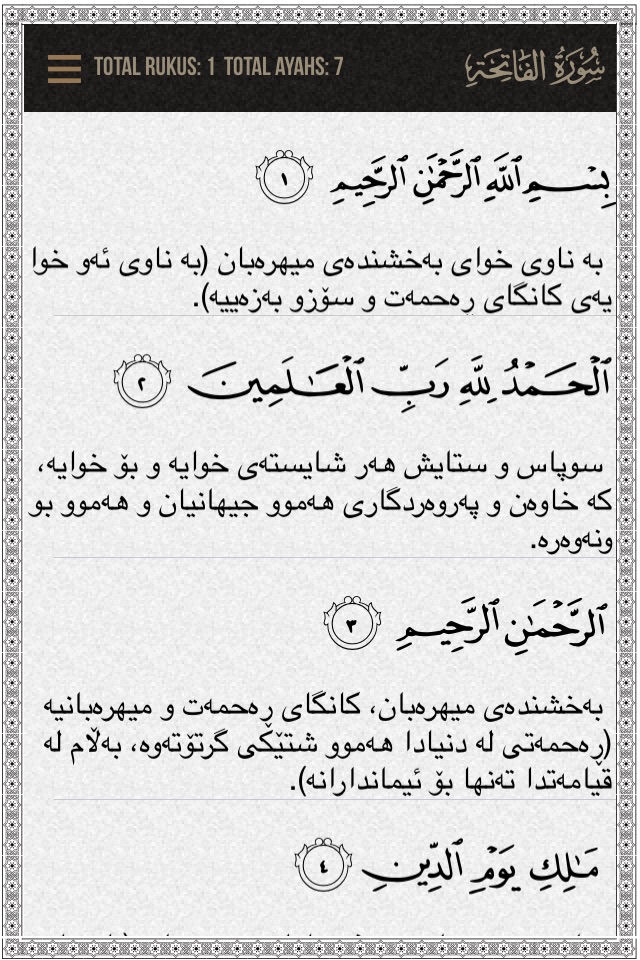 TOTAL RUKUS: 1 TOTAL AYAHS: 7 سُورَةُ الفَاتِحَةِ
بِسْمِ ٱللَّهِ ٱلرَّحْمَٰنِ ٱلرَّحِيمِ ١
به ناوی خوای بهخشندهی میهرهبان (به ناوی ئهو خوا
یهی کانگای ڕهحمهت و سۆزو بهزهییه).
ٱلْحَمْدُ لِلَّهِ رَبِّ ٱلْعَٰلَمِينَ ٢
سوپاس و ستایش ههر شایستهی خوایه و بۆ خوایه،
که خاوهن و پهروهردگاری ههموو جیهانیان و ههموو بو
ونهوهره.
ٱلرَّحْمَٰنِ ٱلرَّحِيمِ ٣
بهخشندهی میهرهبان، کانگای ڕهحمهت و میهرهبانیه
(ڕهحمهتی له دنیادا ههموو شتێکی گرتۆتهوه، بهڵام له
قیامهتدا تهنها بۆ ئیماندارانه).
مَٰلِكِ يَوْمِ ٱلدِّينِ ٤